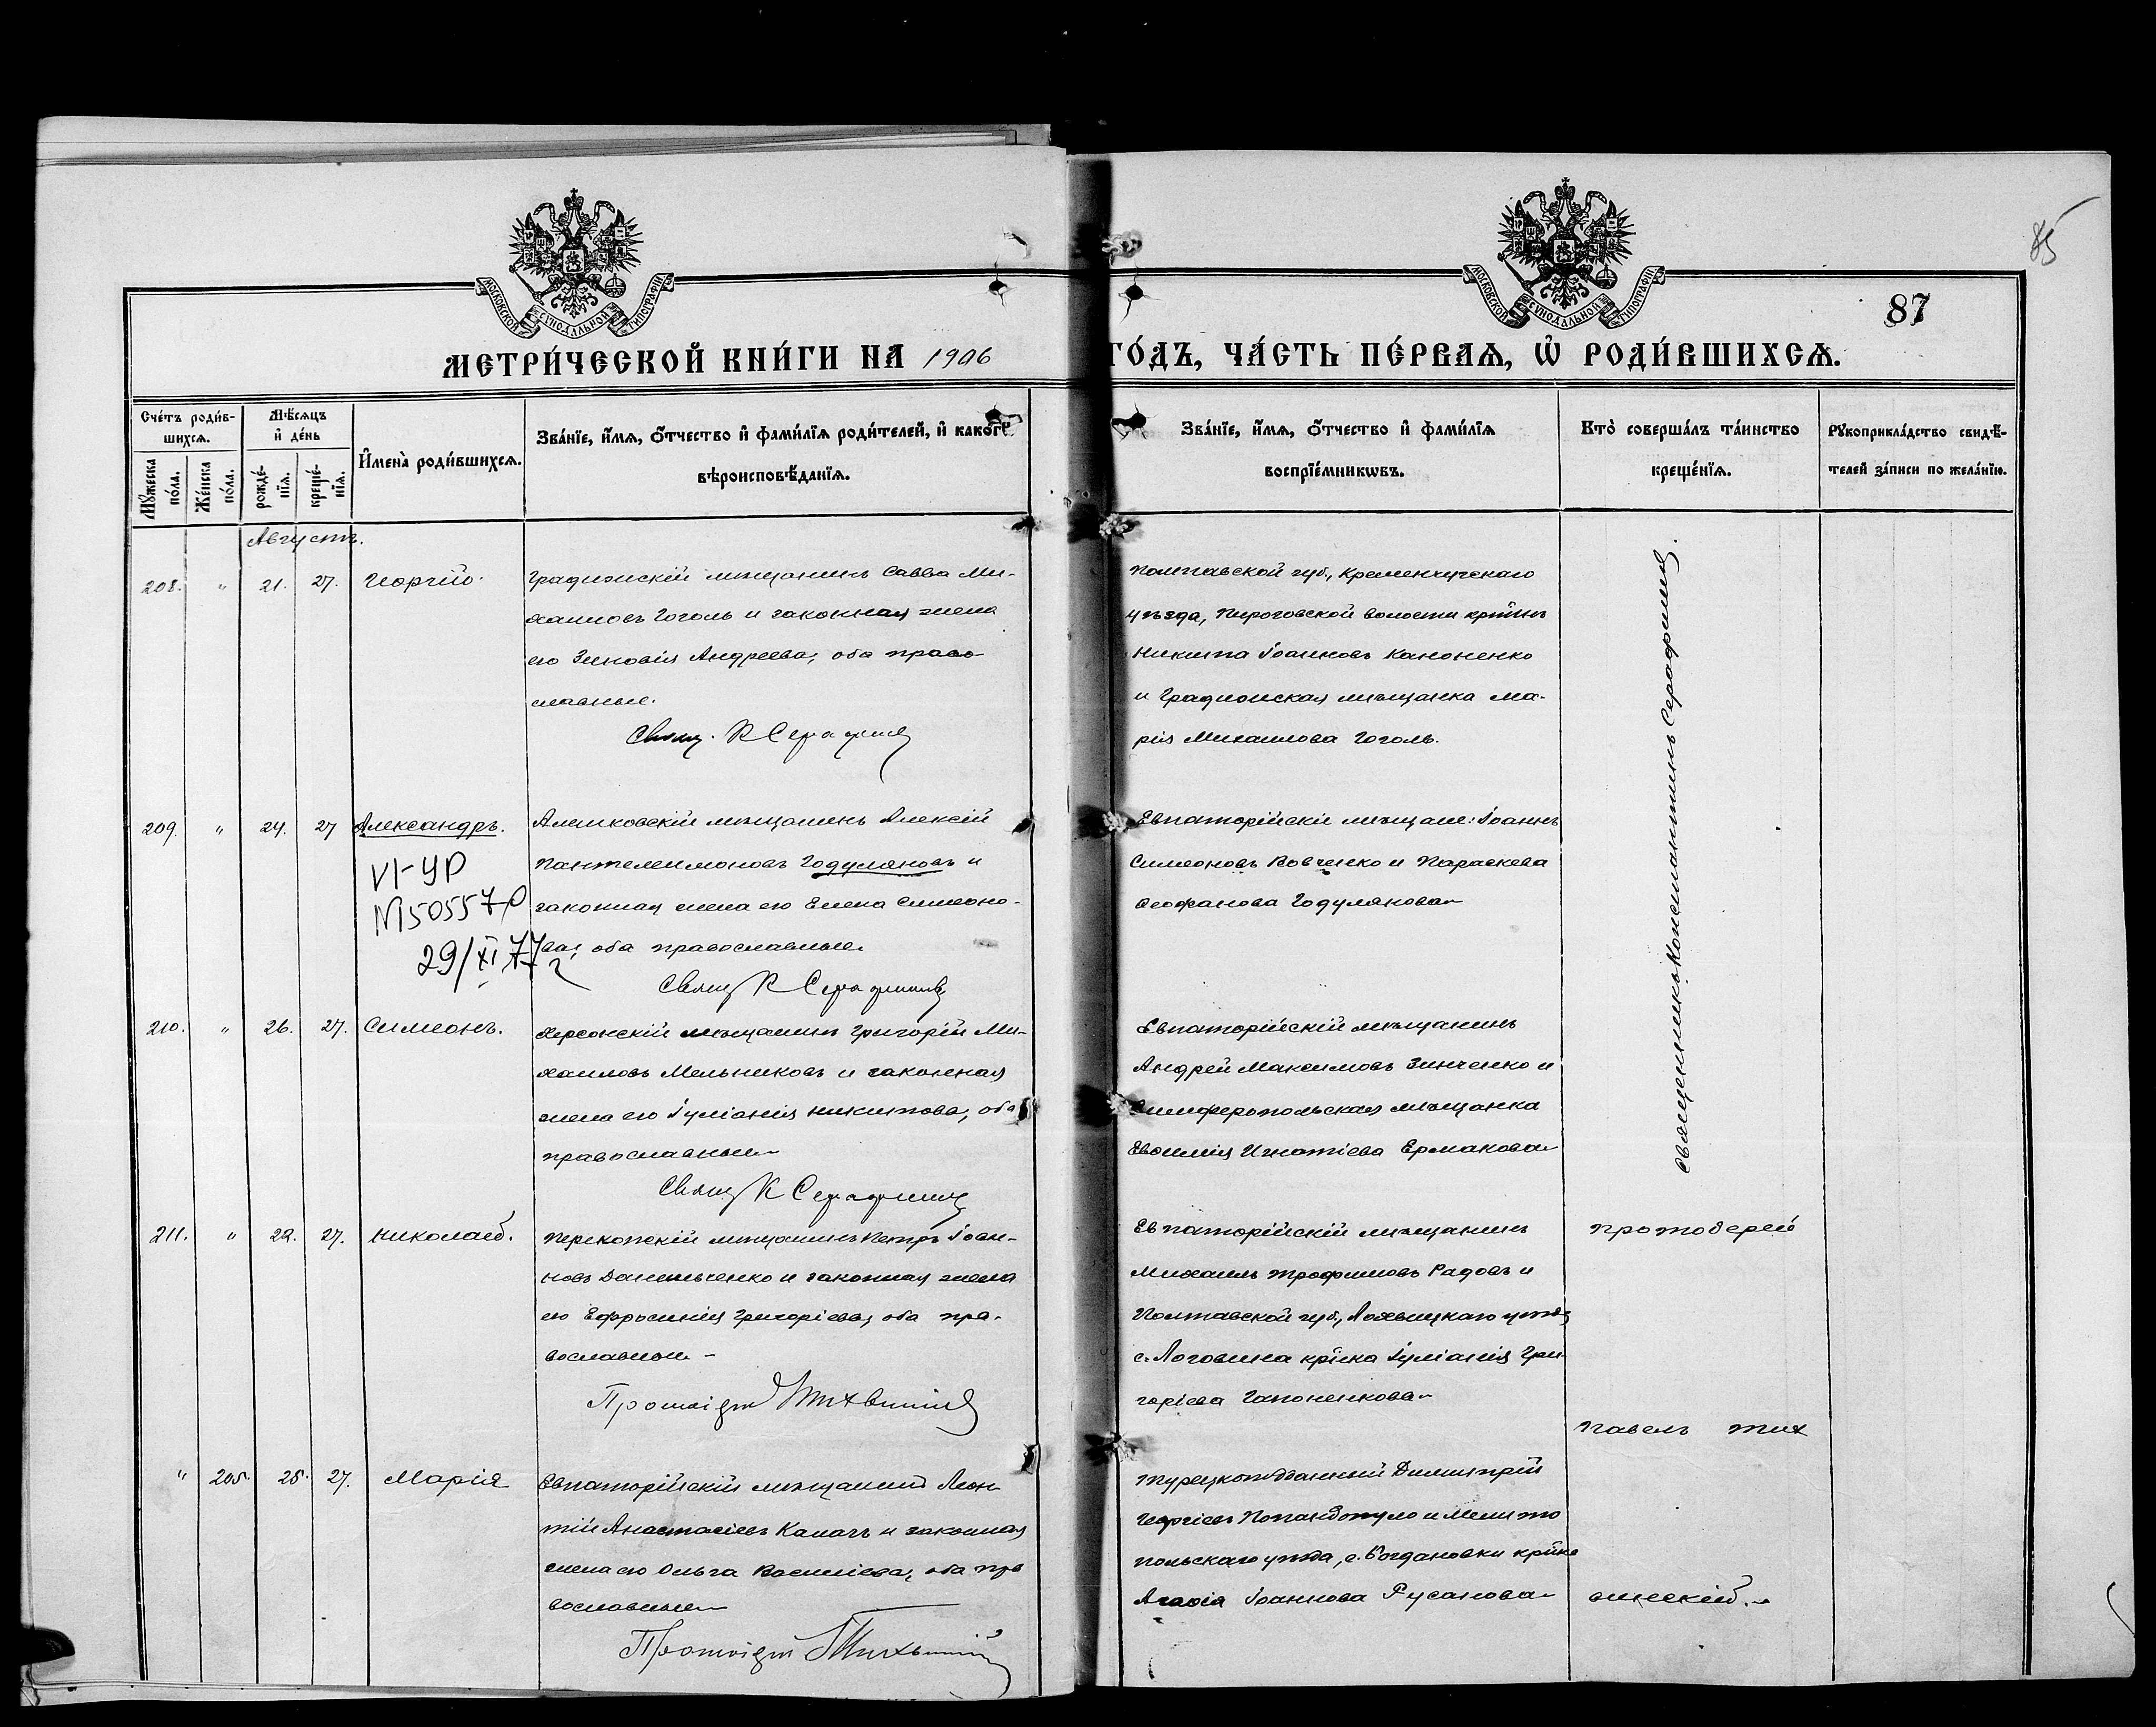 85
87
МОСКОВСКОЙ СѴНОДАЛЬНОЙ ТИПОГРАФІИ
МОСКОВСКОЙ СѴНОДАЛЬНОЙ ТИПОГРАФІИ
МЕТРИ́ЧЕСКОЙ КНИ́ГИ НА 1906
ГО́ДЪ, ЧА́СТЬ ПЕ́РВАЯ, Ѡ҆ РОДИ́ВШИХСЯ.
Сче́тъ роди́в-
шихся.
Мѣ́сяцъ
и де́нь
Мꙋ́жеска
по́ла.
Же́нска
по́ла.
рожде́-
нїя.
креще́-
нїя.
И҆мена̀ роди́вшихся.
Зва́нїе, и҆́мя, ѻ҆́тчество и҆ фами́лїя роди́телей, и҆ како́гѡ
вѣроисповѣ́данїя.
Зва́нїе, и҆́мя, ѻ҆́тчество и҆ фами́лїя
воспрїе́мникѡвъ.
Кто̀ соверша́лъ та́инство
креще́нїя.
Рꙋкоприкла́дство свидѣ́-
телей за́писи по жела́нїю.
Августъ.
208. " 21. 27. Георгій.
Градижскій мѣщанинъ Савва Ми-
хаиловъ Гоголь и законная жена
его Зиновія Андреева, оба право-
славные.
Свящ. К Серафимов
Полтавской губ., Кременчугскаго
уѣзда, Пироговской волости кр̃нинъ
Никита Іоанновъ Кононенко
и Градижская мѣщанка Ма-
рія Михаилова Гоголь.
Священникъ Константинъ Серафимов.
209. " 24. 27 Александръ.
VI-УР
N150557
29/XI 77
Алешковскій мѣщанинъ Алексій
Пантелеимоновъ Годуляновъ и
законная жена его Елена Симеоно-
ва, оба православные.
Свящ К Серафимов
Евпаторійскіе мѣщане: Іоаннъ
Симеоновъ Вовченко и Параскева
Ѳеофанова Годулянова
210. " 26. 27. Симеонъ.
Херсонскій мѣщанинъ Григорій Ми-
хаиловъ Мельниковъ и законная
жена его Іуліанія Никитова, оба
православные
Свящ К Серафимов
Евпаторійскій мѣщанинъ
Андрей Максимовъ Зинченко и
Симферопольская мѣщанка
Евѳимія Игнатіева Ермакова
211. " 22. 27. Николай.
Перекопскій мѣщанинъ Петръ Іоан-
новъ Данильченко и законная жена
его Ефросинія Григоріева, оба пра-
вославные
Протоіерей Тихвинскій
Евпаторійскій мѣщанинъ
Михаилъ Трофимовъ Радовъ и
Полтавской губ., Лохвицкаго уѣзд
с. Логовина кр̃нка Іуліанія Гри-
горіева Гапоненкова
Протоіерей
Павелъ Тих
" 205. 25. 27. Марія
Евпаторійскій мѣщанинъ Леон
тій Анастасіевъ Камачъ и законная
жена его Ольга Василіева, оба пра
вославные
Протоіерей Тихвинскій
Турецкоподданный Димитрій
Георгіевъ Попандопуло и Мелито
польскаго уѣзда, с. Богдановки кр̃нка
Агаѳія Іоаннова Русанова
винскій.